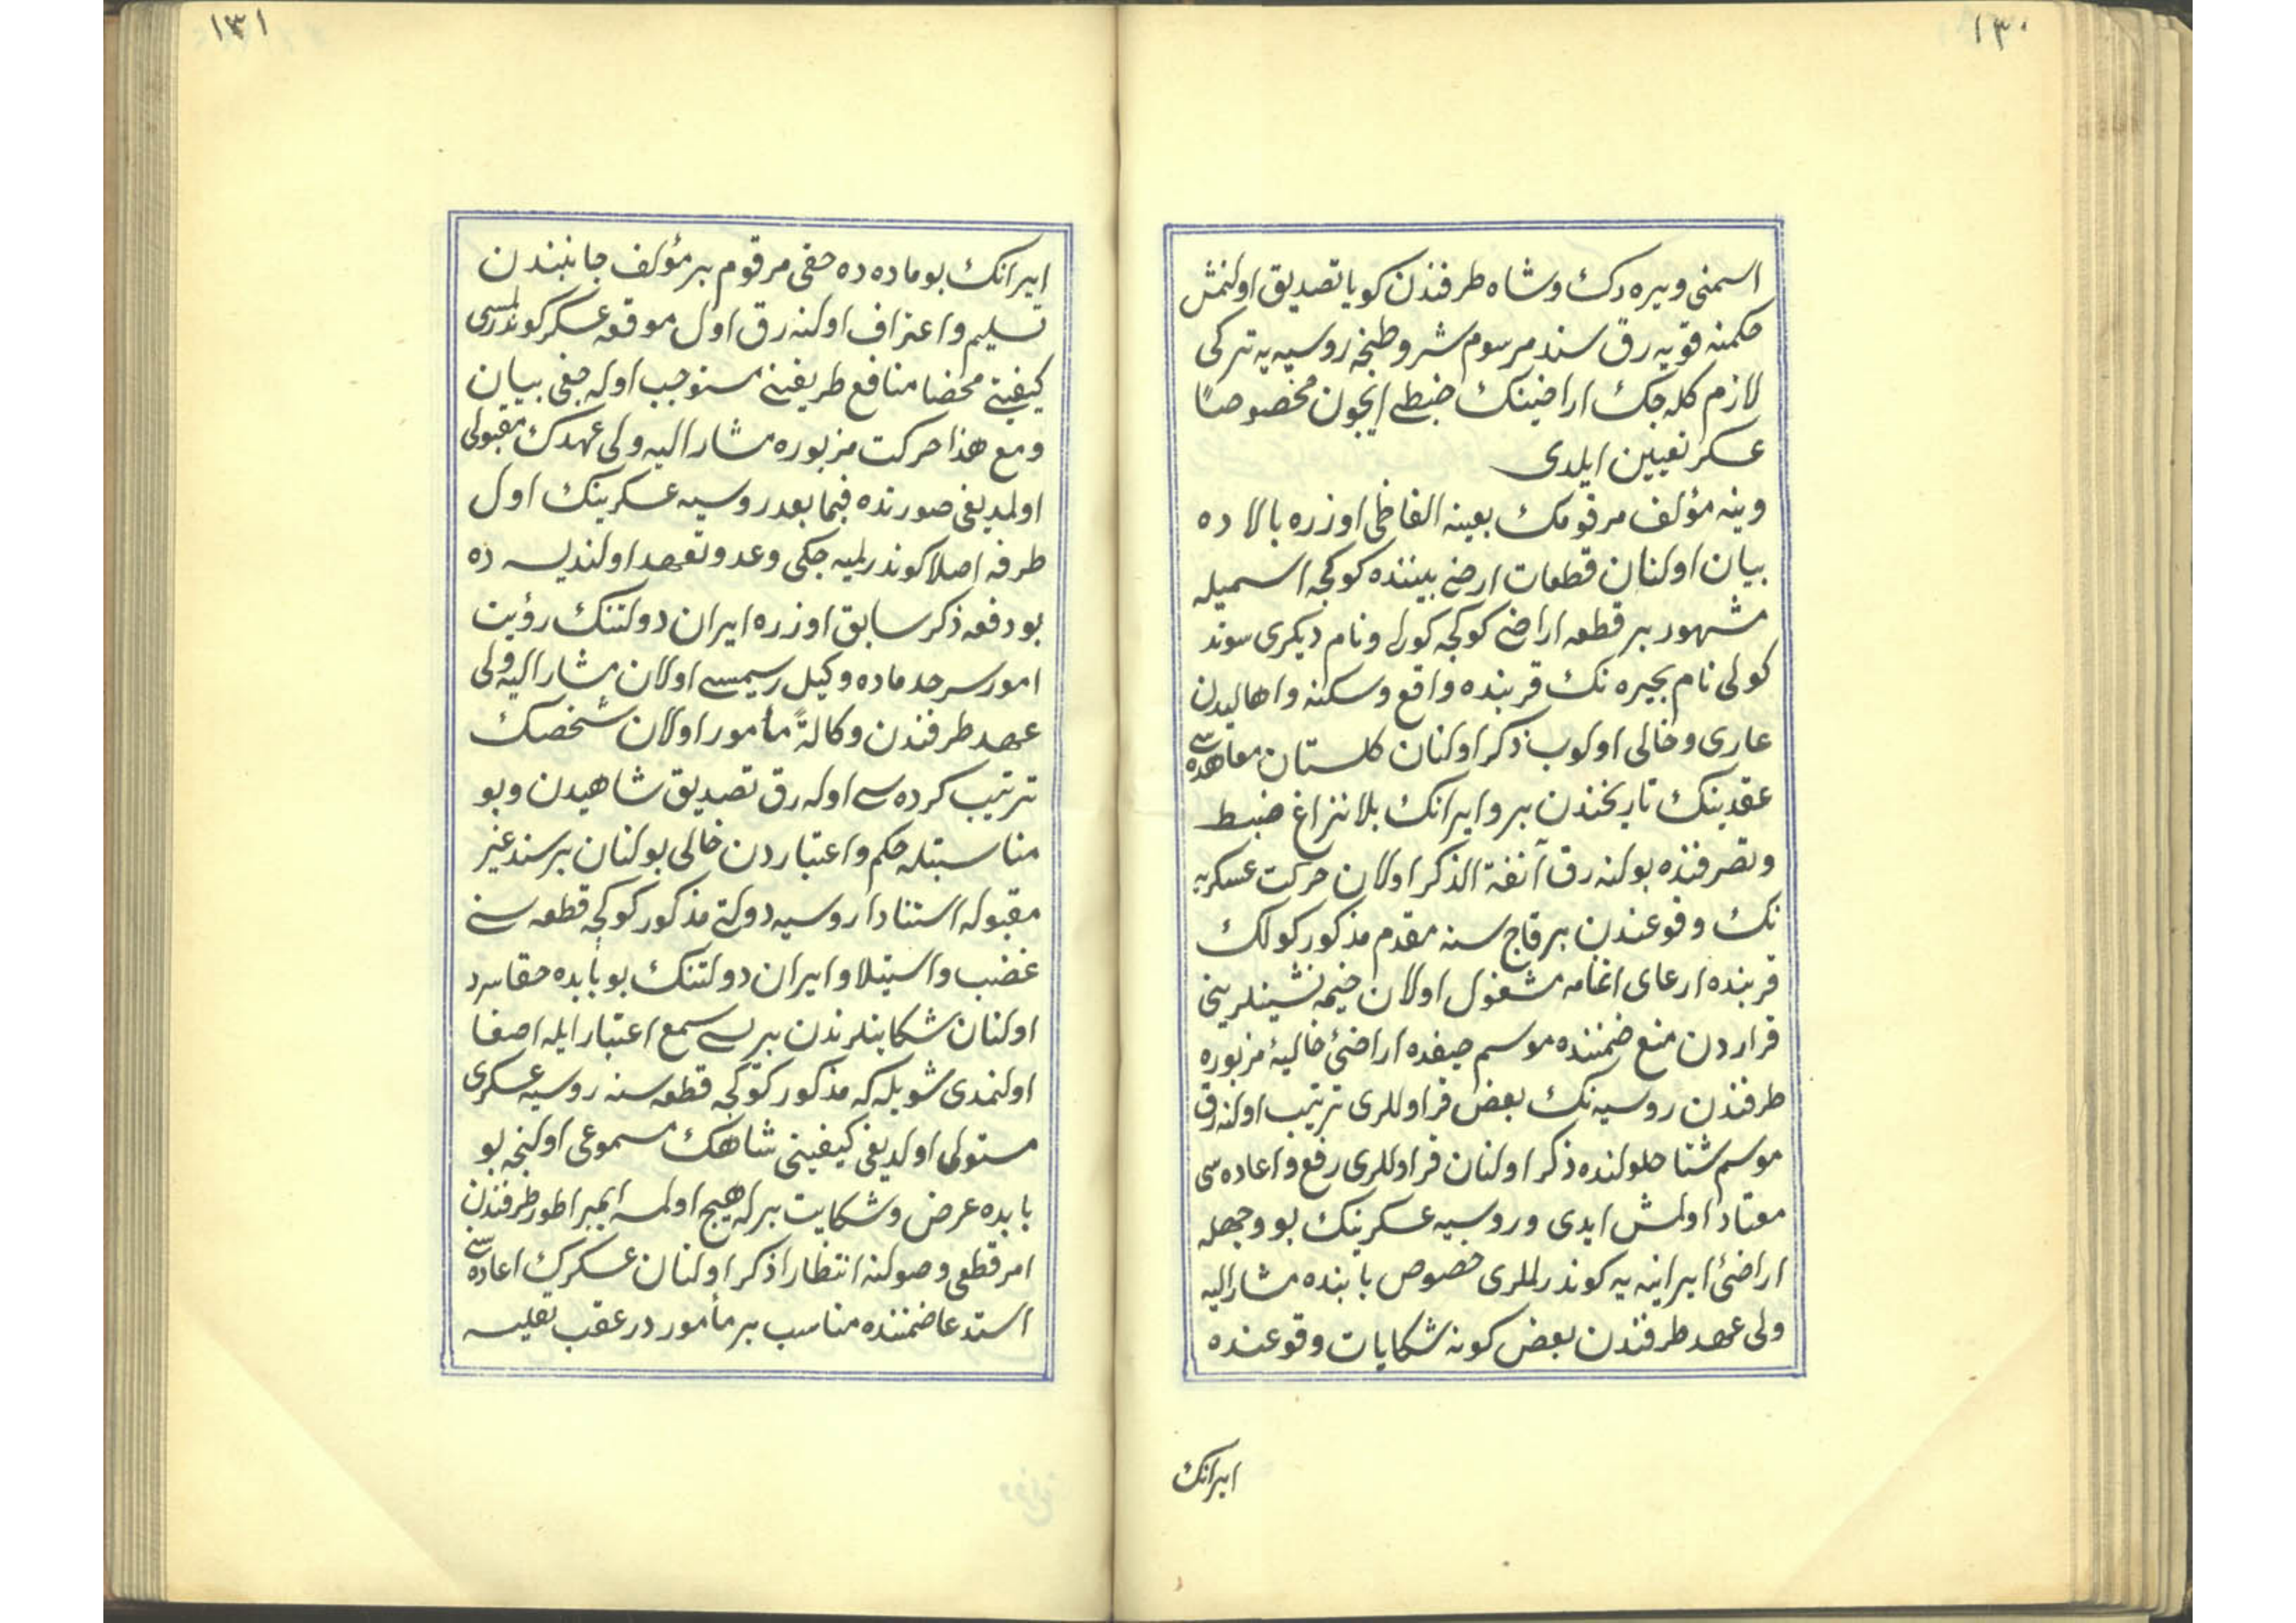 ١٣٠
اسمنی ویره‌رك وشاه طرفندن كویا تصدیق اولنمش
حكمنه قویه‌رق سند مرسوم شروطنجه روسیه‌یه تركی
لازم كله‌جك اراضینك ضبطی ایچون مخصوصاً
عسكر تعیین ایلدی
وینه مؤلف مرقومك بعینه الفاظی اوزره بالاده
بیان اولنان قطعات ارضی بیننده كوكجه اسمیله
مشهور بر قطعه اراضی كوكجه كولی ونام دیكری سوند
كولی نام بحیره‌نك قربنده واقع وسكنه واهالیدن
عاری وخالی اولوب ذكر اولنان كلستان معاهده‌سی
عقدینك تاریخندن برو ایرانك بلا نزاع ضبط
وتصرفنده بولنه‌رق آنفة الذكر اولان حركت عسكریه
نك وقوعندن بر قاچ سنه مقدم مذكور كولك
قربنده ارعای اغنامه مشغول اولان خیمه نشینلرینی
قراردن منع ضمننده موسم صیفده اراضئ خالیۀ مزبوره
طرفندن روسیه‌نك بعض قراوللری ترتیب اولنه‌رق
موسم شتا حلولنده ذكر اولنان قراوللری رفع واعاده‌سی
معتاد اولمش ایدی وروسیه عسكرینك بو وجهله
اراضئ ایرانیه‌یه كوندرلملری خصوص بابنده مشار الیه
ولی عهد طرفندن بعض كونه شكایات وقوعنده
ایرانك
١٣١
ایرانك بو ماده‌ده حقی مرقوم بر مؤلف جانبندن
تسلیم واعتراف اولنه‌رق اول موقعه عسكر كوندرلمسی
كیفیتی محضا منافع طریفینی مستوجب اوله‌جغی بیان
ومع هذا حركت مزبوره مشار الیه ولی عهدك مقبولی
اولمدیغی صورتده فیما بعد روسیه عسكرینك اول
طرفه اصلا كوندرلمیه‌جكی وعد وتعهد اولندیسه ده
بو دفعه ذكر سابق اوزره ایران دولتنك رؤیت
امور سرحد ماده وكیل رسمیسی اولان مشار الیه ولی
عهد طرفندن وكالةً مأمور اولان شخصك
ترتیب كرده‌سی اوله‌رق تصدیق شاهیدن وبو
مناسبتله حكم واعتباردن خالی بولنان بر سند غیر
مقبوله استنادا روسیه دولتی مذكور كوكجه قطعه‌سنی
غضب واستیلا وایران دولتنك بو بابده حقا سرد
اولنان شكایتلرندن بریسی سمع اعتبار ایله اصغا
اولنمدی شویله‌كه مذكور كوكجه قطعه‌سنه روسیه عسكری
مستولی اولدیغی كیفیتی شاهك مسموعی اولنجه بو
بابده عرض وشكایت بر له هیچ اولمسه ایمپراطور طرفندن
امر قطعی وصولنه انتظارا ذكر اولنان عسكرك اعاده‌سنی
استدعا ضمننده مناسب بر مأمور در عقب تفلیسه